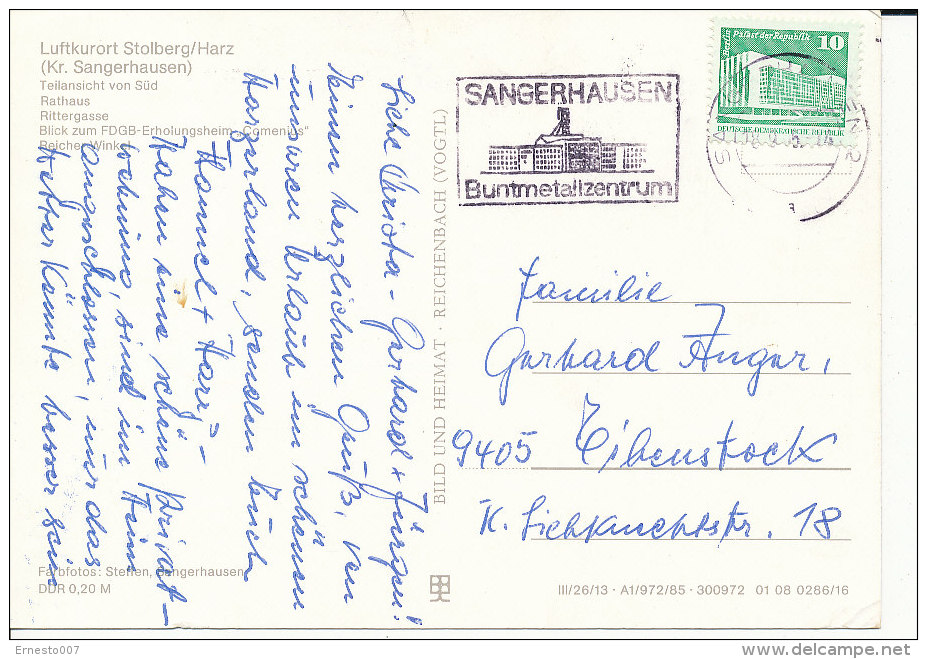 Luftkurort Stolberg/Harz
(Kr. Sangerhausen)
Teilansicht von Süd
Rathaus
Rittergasse
Blick zum FDGB-Erholungsheim „Comenius“
Reicher Winkel
Liebe Christa - Gerhard + Jürgen!
Einen herzlichen Gruß, von
unseren Urlaub im schönen
Harzerland, senden Euch
Hannel + Harj -
Haben eine schöne Privat-
wohnung, sind im Heim
angeschlossen, nur das
Wetter könnte besser sein
Farbfotos: Steffen, Sangerhausen
DDR 0,20 M
BILD UND HEIMAT · REICHENBACH (VOGTL)
SANGERHAUSEN
Buntmetallzentrum
Palast der Republik 10
DEUTSCHE DEMOKRATISCHE REPUBLIK
Familie
Gerhard Unger,
9405 Eibenstock
K. Liebknechtstr. 18
III/26/13 · A1/972/85 · 300972 01 08 0286/16
Ernesto007
www.delcampe.net